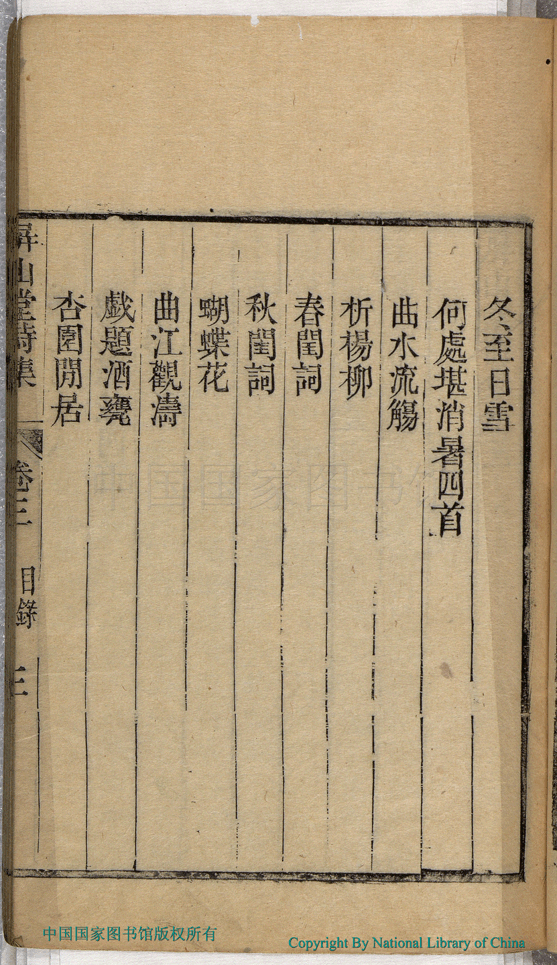 冬至日雪
何處堪消暑四首
曲水流觴
析楊柳
春閨詞
秋閨詞
蝴蝶花
曲江觀濤
戲題酒甕
杏園閒居
屏山堂詩集 卷三 目錄 三
中国国家图书馆
中国国家图书馆版权所有
Copyright By National Library of China